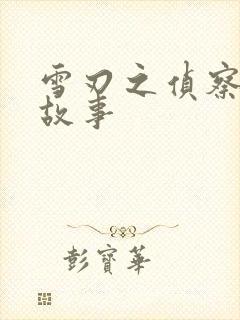 雪刃之偵察
故事
彭寶華